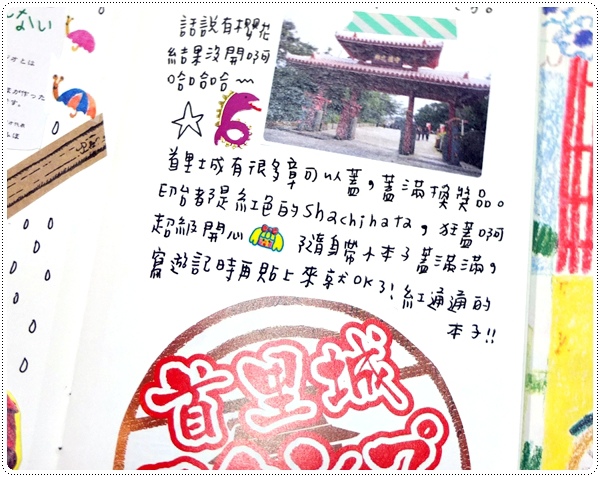 ない
話說有櫻花
結果沒開啊
哈哈哈~~
首里城有很多章可以蓋，蓋滿換獎品。
印台都是紅色的Shachihata，狂蓋啊
超級開心 隨身帶小本子蓋滿滿，
寫遊記時再貼上來就OK了！紅通通的
本子!!
首里城